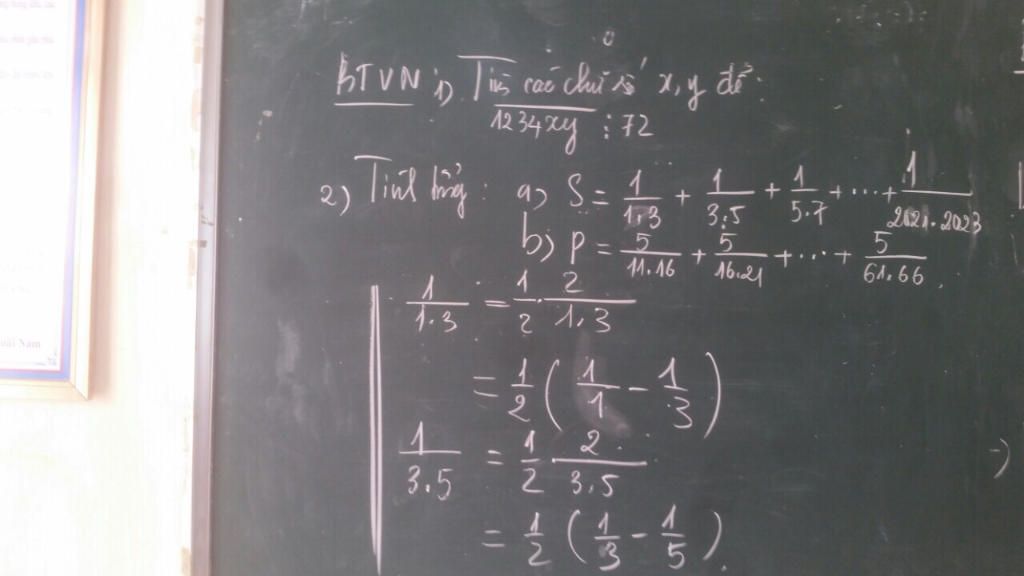 BTVN 1) Tìm các chữ số x, y để:
1234xy ⋮ 72
2) Tính tổng: a) S = 1/1.3 + 1/3.5 + 1/5.7 + ... + 1/2021.2023
b) P = 5/11.16 + 5/16.21 + ... + 5/61.66.
1/1.3 = 1/2 . 2/1.3
= 1/2 (1/1 - 1/3)
1/3.5 = 1/2 . 2/3.5
= 1/2 (1/3 - 1/5).
oài Nam